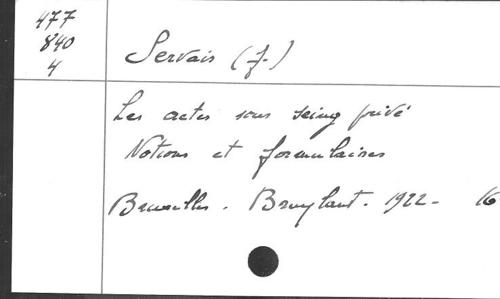 477
840
4
Servais (J.)
Les actes sous seing privé
Notions et formulaires
Bruxelles. Bruylant. 1922. 16